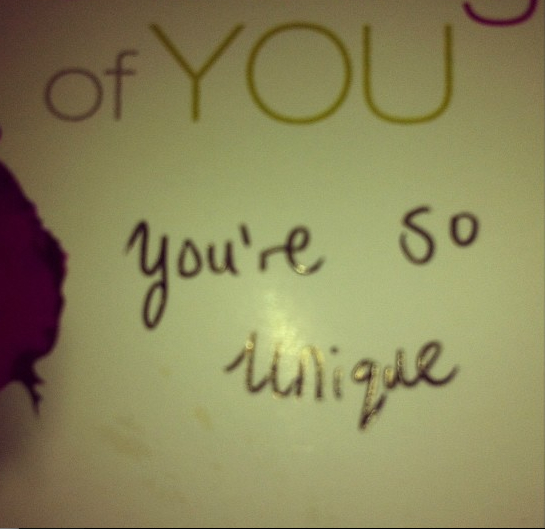 of YOU
you're so
unique